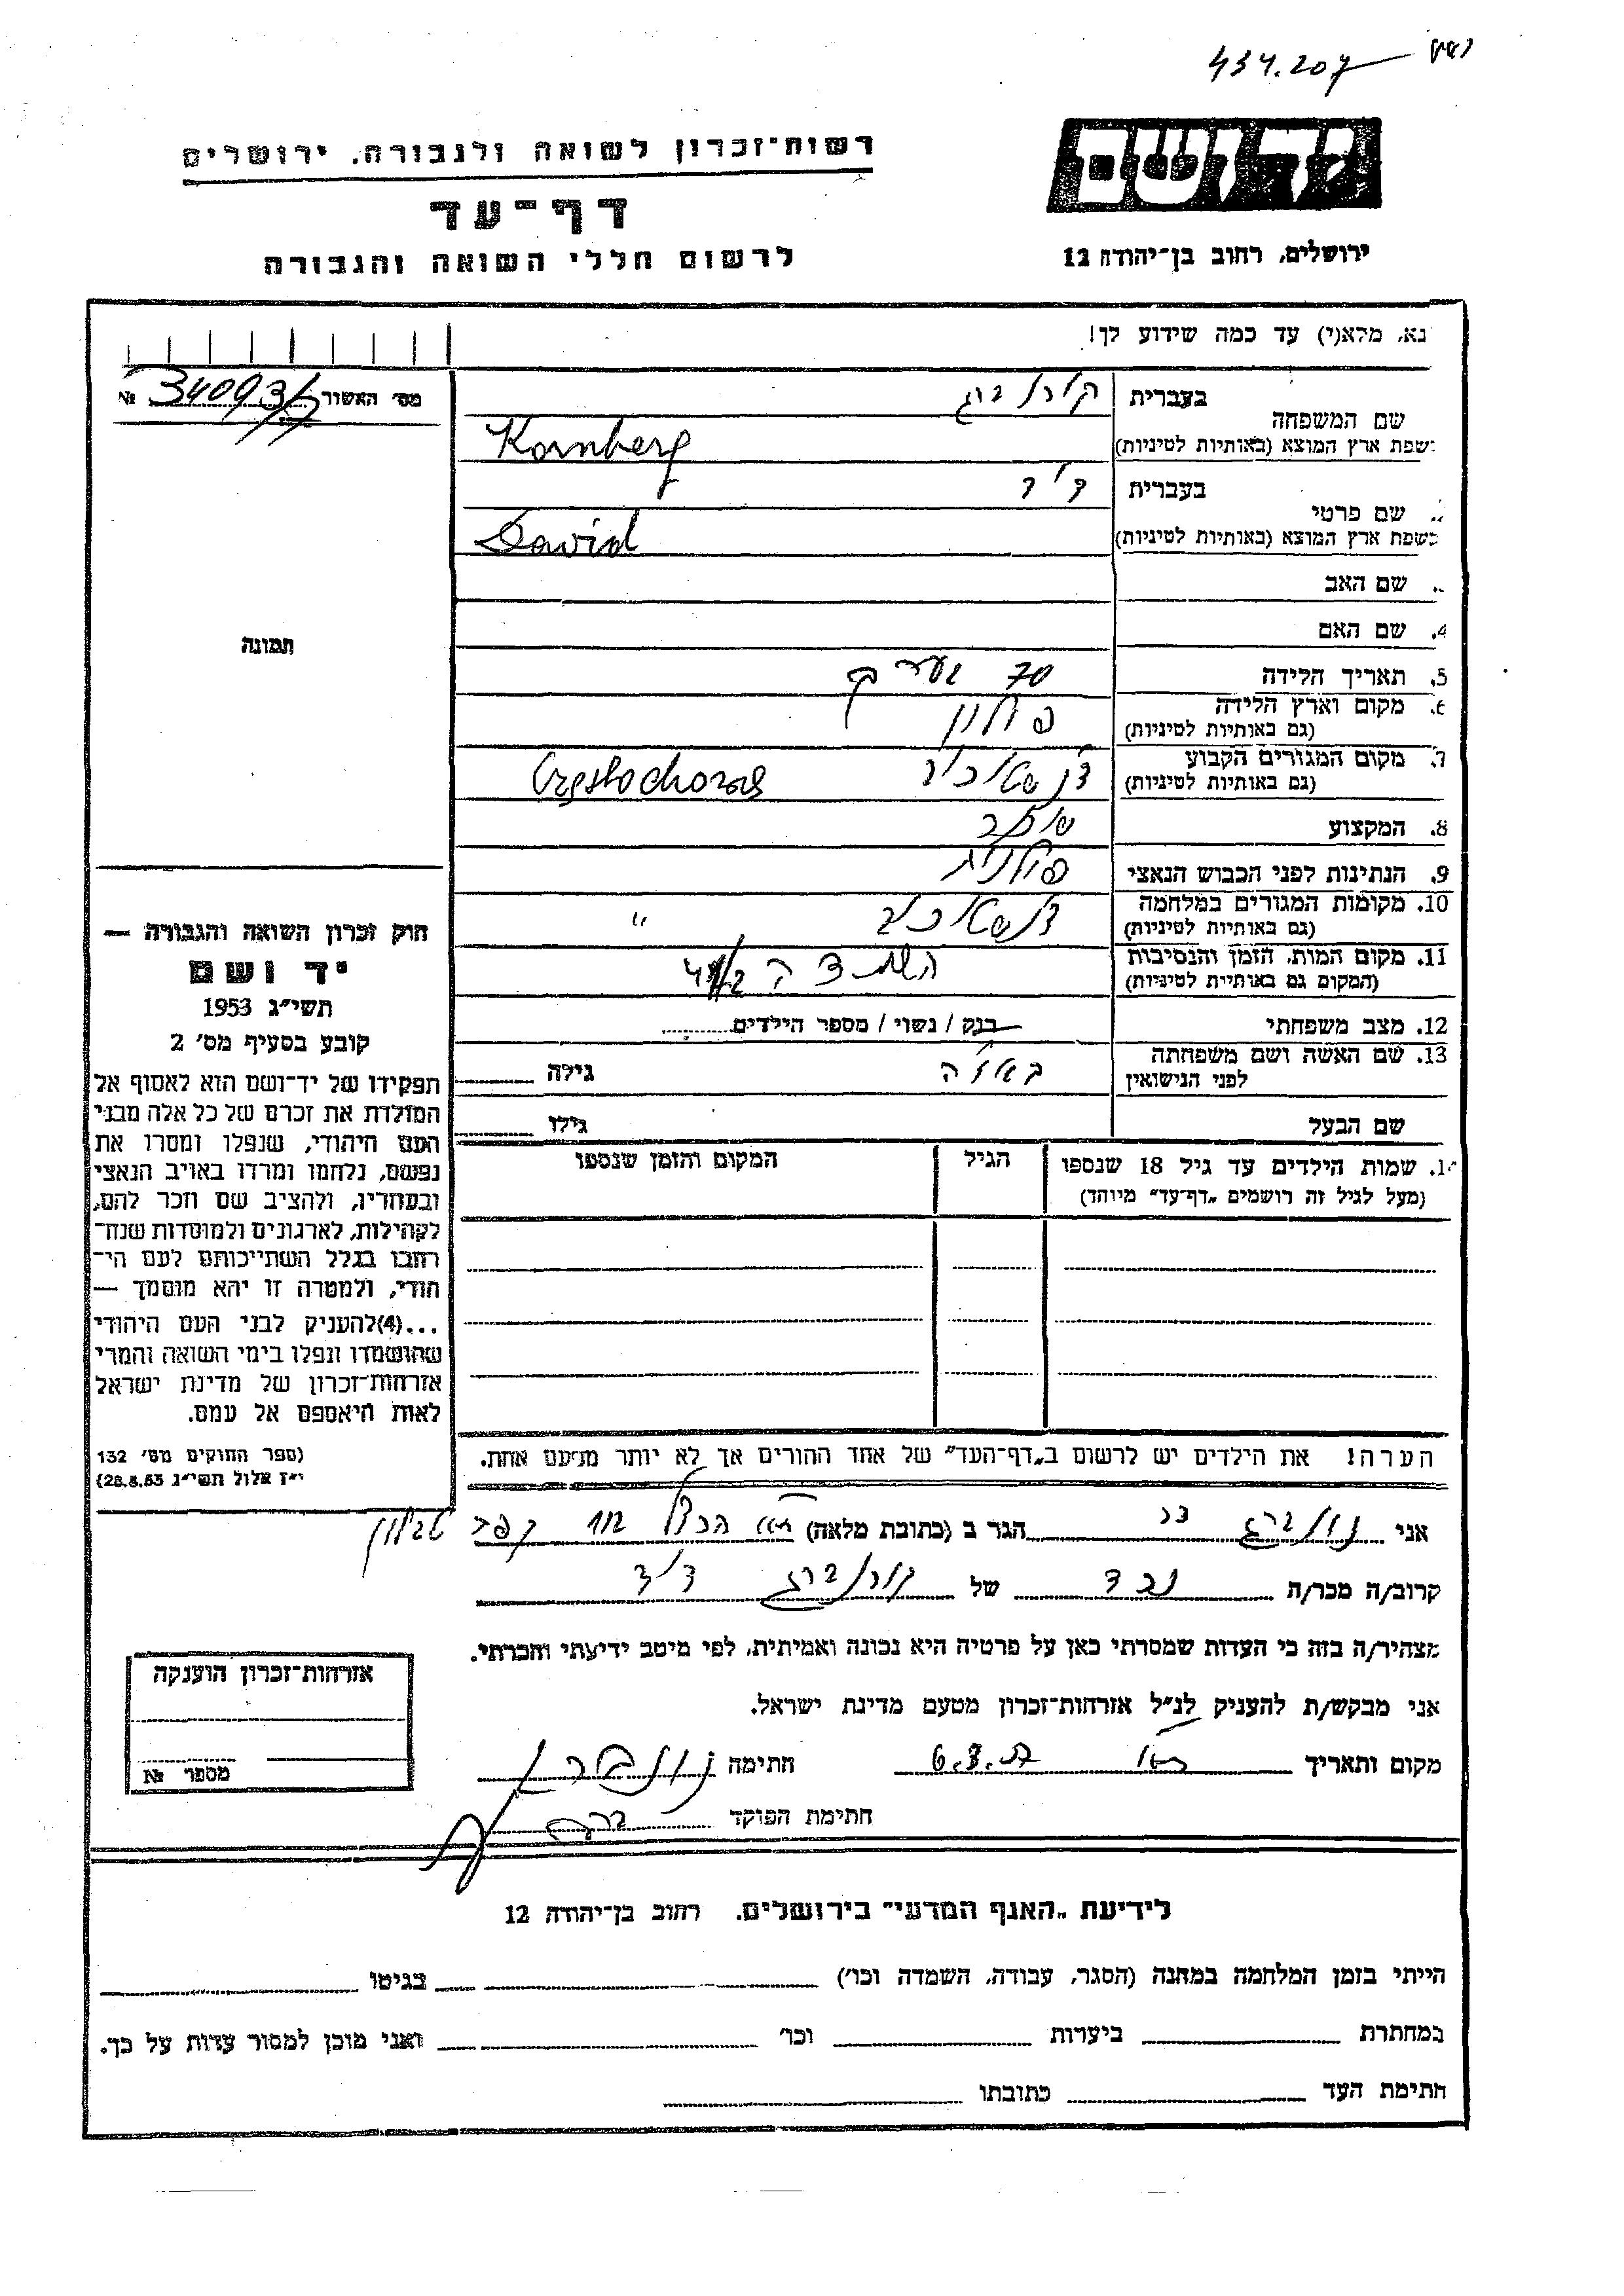 434.207
רשות־זכרון לשואה ולגבורה, ירושלים
יד ושם
דף־עד
לרשום חללי השואה והגבורה
ירושלים, רחוב בן־יהודה 12
נא, מלא(י) עד כמה שידוע לך!
מס׳ האשור 340931 №
שם המשפחה בעברית קורנברג
בשפת ארץ המוצא (באותיות לטיניות) Kornberg
שם פרטי בעברית דוד
בשפת ארץ המוצא (באותיות לטיניות) David
שם האב
4. שם האם
תמונה
5. תאריך הלידה 70 בערך
6. מקום וארץ הלידה פולין
(גם באותיות לטיניות)
7. מקום המגורים הקבוע צ'נסטוכוב
(גם באותיות לטיניות)
8. המקצוע סוחר
9. הנתינות לפני הכבוש הנאצי פולנית
10. מקומות המגורים במלחמה צ'נסטוכוב "
(גם באותיות לטיניות)
11. מקום המות, הזמן והנסיבות
(המקום גם באותיית לטיניות)
12. מצב משפחתי רנק / נשוי / מספר הילדים
13. שם האשה ושם משפחתה
לפני הנישואין גילה
שם הבעל גילו
שמות הילדים עד גיל 18 שנספו הגיל המקום והזמן שנספו
(מעל לגיל זה רושמים „דף־עד״ מיוחד)
הערה! את הילדים יש לרשום ב„דף־העד״ של אחד ההורים אך לא יותר מפעם אחת.
חוק זכרון השואה והגבורה —
יד ושם
תשי״ג 1953
קובע בסעיף מס׳ 2
תפקידו של יד־ושם הוא לאסוף אל
המולדת את זכרם של כל אלה מבני
העם היהודי, שנפלו ומסרו את
נפשם, נלחמו ומרדו באויב הנאצי
ובעוזריו, ולהציב שם וזכר להם,
לקהילות, לארגונים ולמוסדות שנח־
רבו בגלל השתייכותם לעם הי־
הודי, ולמטרה זו יהא מוסמך —
...(4)להעניק לבני העם היהודי
שהושמדו ונפלו בימי השואה והמרי
אזרחות־זכרון של מדינת ישראל
לאות היאספם אל עמם.
(ספר החוקים מס׳ 132
י״ז אלול תשי״ג 28.8.53)
אני הגר ב (כתובת מלאה)
קרוב/ה מכר/ה נכד של קורנברג דוד
מצהיר/ה בזה כי העדות שמסרתי כאן על פרטיה היא נכונה ואמיתית, לפי מיטב ידיעתי והכרתי.
אני מבקש/ת להעניק לנ״ל אזרחות־זכרון מטעם מדינת ישראל.
מקום ותאריך חתימה
חתימת הפוקד
אזרחות־זכרון הוענקה
מספר №
לידיעת „האגף המדעי״ בירושלים. רחוב בן־יהודה 12
הייתי בזמן המלחמה במחנה (הסגר, עבודה, השמדה וכו׳) בגיטו
במחתרת ביערות וכו׳ ואני מוכן למסור עדות על כך.
חתימת העד כתובתו